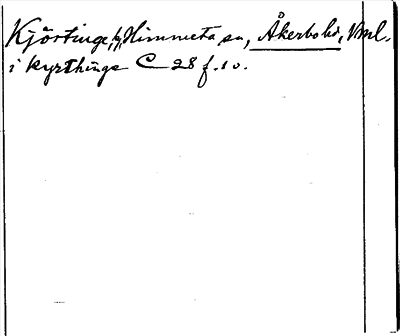 Kjörtinge, by, Himmeta sn, Åkerbo hd, Vml.
i kyrthinge C 28 f. 10.